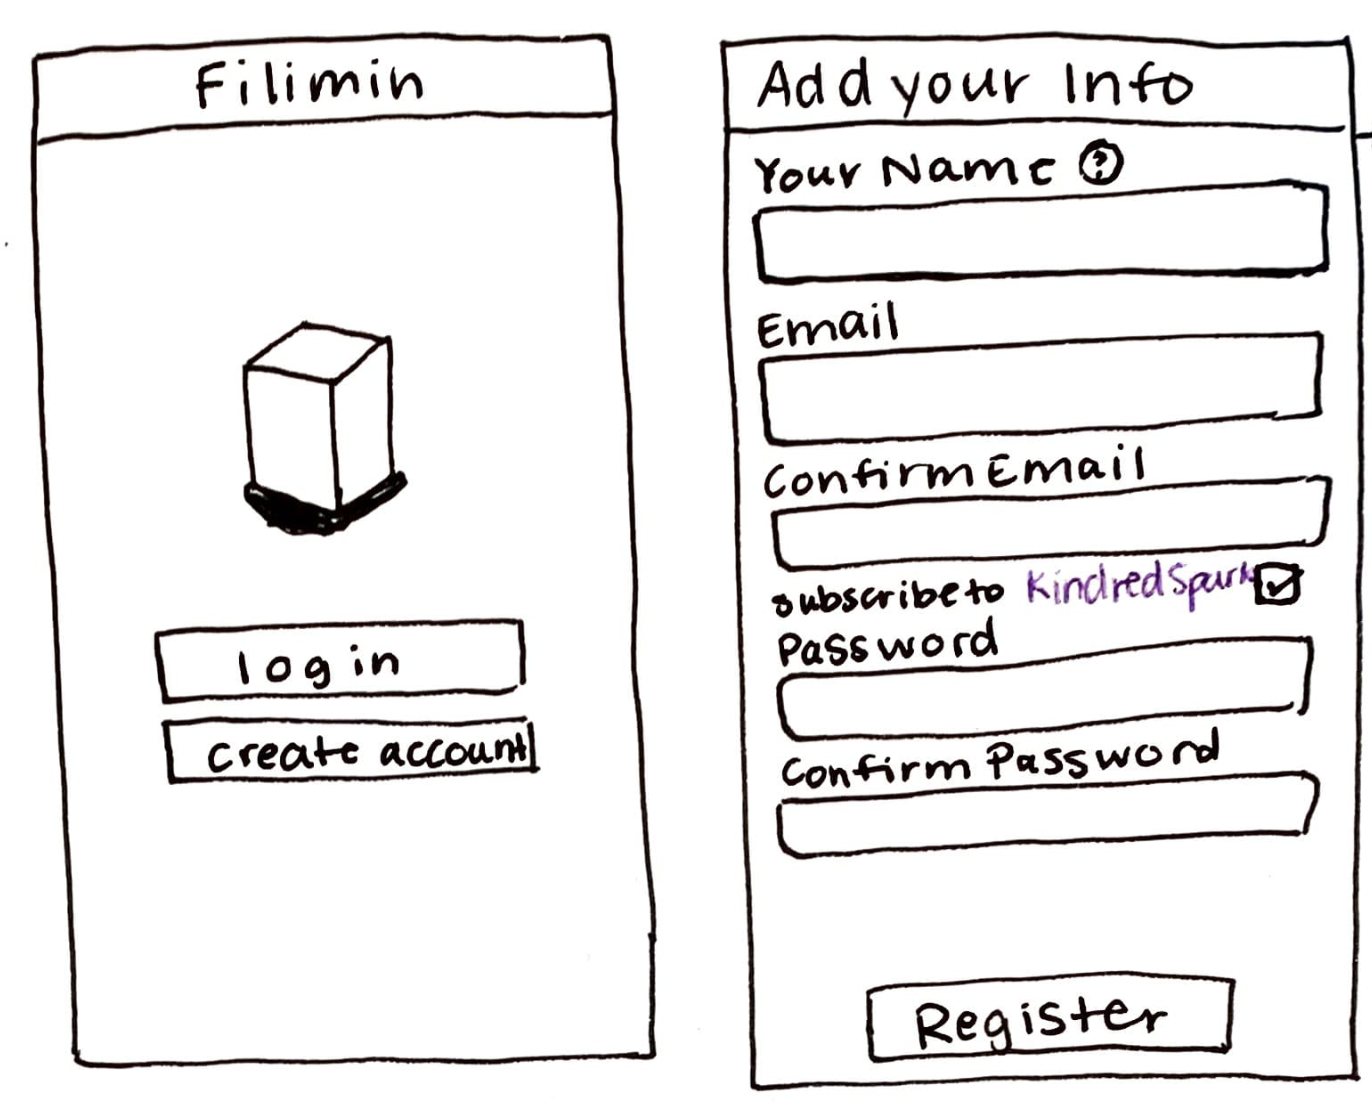 Filimin
log in
create account
Add your Info
Your Name ?
Email
Confirm Email
subscribe to KindredSpark
Password
Confirm Password
Register